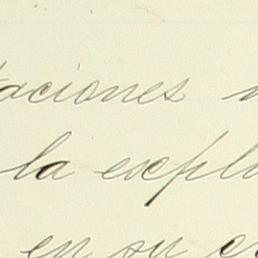 taciones
la espl
en su